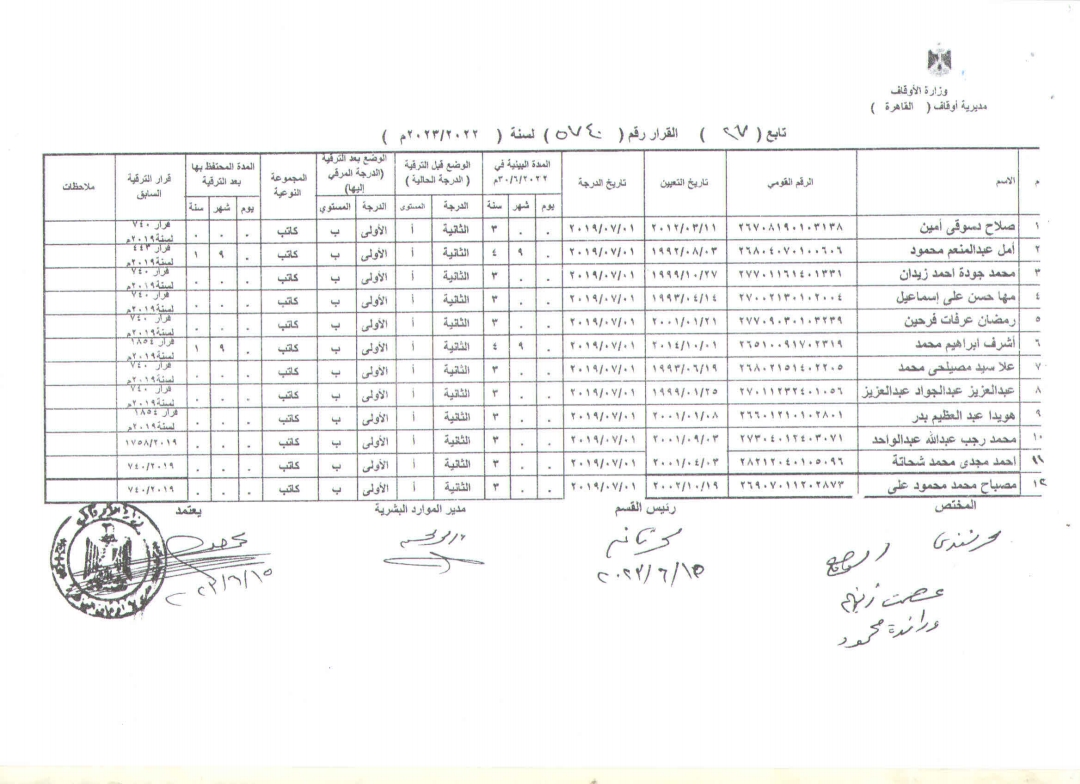 وزارة الأوقاف
مديرية أوقاف ( القاهرة )
تابع ( ٢٧ ) القرار رقم ( ٥٧٤٠ ) لسنة ( ٢٠٢٣/٢٠٢٢م )
م الاسم الرقم القومي تاريخ التعيين تاريخ الدرجة المدة البينية في ٢٠٢٢/٦/٣٠م الوضع قبل الترقية ( الدرجة الحالية ) الوضع بعد الترقية (الدرجة المرقي إليها) المجموعة النوعية المدة المحتفظ بها بعد الترقية قرار الترقية السابق ملاحظات
يوم شهر سنة الدرجة المستوى الدرجة المستوي يوم شهر سنة
١ صلاح دسوقى أمين ٢٦٧٠٨١٩٠١٠٣١٣٨ ٢٠١٢/٠٣/١١ ٢٠١٩/٠٧/٠١ ٠ ٠ ٣ الثانية أ الأولى ب كاتب ٠ ٠ ٠ قرار ٧٤٠ لسنة ٢٠١٩م
٢ أمل عبدالمنعم محمود ٢٦٨٠٤٠٧٠١٠٠٦٠٦ ١٩٩٢/٠٨/٠٣ ٢٠١٩/٠٧/٠١ ٠ ٩ ٤ الثانية أ الأولى ب كاتب ٠ ٩ ١ قرار ٤٤٣ لسنة ٢٠١٩م
٣ محمد جودة احمد زيدان ٢٧٧٠١١٦١٤٠١٣٣١ ١٩٩٩/١٠/٢٧ ٢٠١٩/٠٧/٠١ ٠ ٠ ٣ الثانية أ الأولى ب كاتب ٠ ٠ ٠ قرار ٧٤٠ لسنة ٢٠١٩م
٤ مها حسن على إسماعيل ٢٧٠٠٢١٣٠١٠٢٠٠٤ ١٩٩٣/٠٤/١٤ ٢٠١٩/٠٧/٠١ ٠ ٠ ٣ الثانية أ الأولى ب كاتب ٠ ٠ ٠ قرار ٧٤٠ لسنة ٢٠١٩م
٥ رمضان عرفات فرحين ٢٧٧٠٩٠٣٠١٠٣٢٣٩ ٢٠٠١/٠١/٢١ ٢٠١٩/٠٧/٠١ ٠ ٠ ٣ الثانية أ الأولى ب كاتب ٠ ٠ ٠ قرار ٧٤٠ لسنة ٢٠١٩م
٦ أشرف ابراهيم محمد ٢٦٥١٠٠٩١٧٠٢٣١٩ ٢٠١٤/١٠/٠١ ٢٠١٩/٠٧/٠١ ٠ ٩ ٤ الثانية أ الأولى ب كاتب ٠ ٩ ١ قرار ١٨٥٤ لسنة ٢٠١٩م
٧ علا سيد مصيلحى محمد ٢٦٨٠٢١٥١٤٠٢٢٠٥ ١٩٩٣/٠٦/١٩ ٢٠١٩/٠٧/٠١ ٠ ٠ ٣ الثانية أ الأولى ب كاتب ٠ ٠ ٠ قرار ٧٤٠ لسنة ٢٠١٩م
٨ عبدالعزيز عبدالجواد عبدالعزيز ٢٧٠١١٢٣٢٤٠١٠٥٦ ١٩٩٩/٠١/٢٥ ٢٠١٩/٠٧/٠١ ٠ ٠ ٣ الثانية أ الأولى ب كاتب ٠ ٠ ٠ قرار ٧٤٠ لسنة ٢٠١٩م
٩ هويدا عبد العظيم بدر ٢٦٦٠١٢١٠١٠٢٨٠١ ٢٠٠١/٠١/٠٨ ٢٠١٩/٠٧/٠١ ٠ ٠ ٣ الثانية أ الأولى ب كاتب ٠ ٠ ٠ قرار ١٨٥٤ لسنة ٢٠١٩م
١٠ محمد رجب عبدالله عبدالواحد ٢٧٣٠٤٠١٢٤٠٣٠٧١ ٢٠٠١/٠٩/٠٣ ٢٠١٩/٠٧/٠١ ٠ ٠ ٣ الثانية أ الأولى ب كاتب ٠ ٠ ٠ ١٧٥٨/٢٠١٩
١١ احمد مجدى محمد شحاتة ٢٨٢١٢٠٤٠١٠٥٠٩٦ ٢٠٠١/٠٤/٠٣ ٢٠١٩/٠٧/٠١ ٠ ٠ ٣ الثانية أ الأولى ب كاتب ٠ ٠ ٠ ٧٤٠/٢٠١٩
١٢ مصباح محمد محمود على ٢٦٩٠٧٠١١٢٠٢٨٧٣ ٢٠٠٢/١٠/١٩ ٢٠١٩/٠٧/٠١ ٠ ٠ ٣ الثانية أ الأولى ب كاتب ٠ ٠ ٠ ٧٤٠/٢٠١٩
المختص رئيس القسم مدير الموارد البشرية يعتمد
٢٠٢٣/٦/١٥
٢٠٢٣/٦/١٥
وراندة محمود